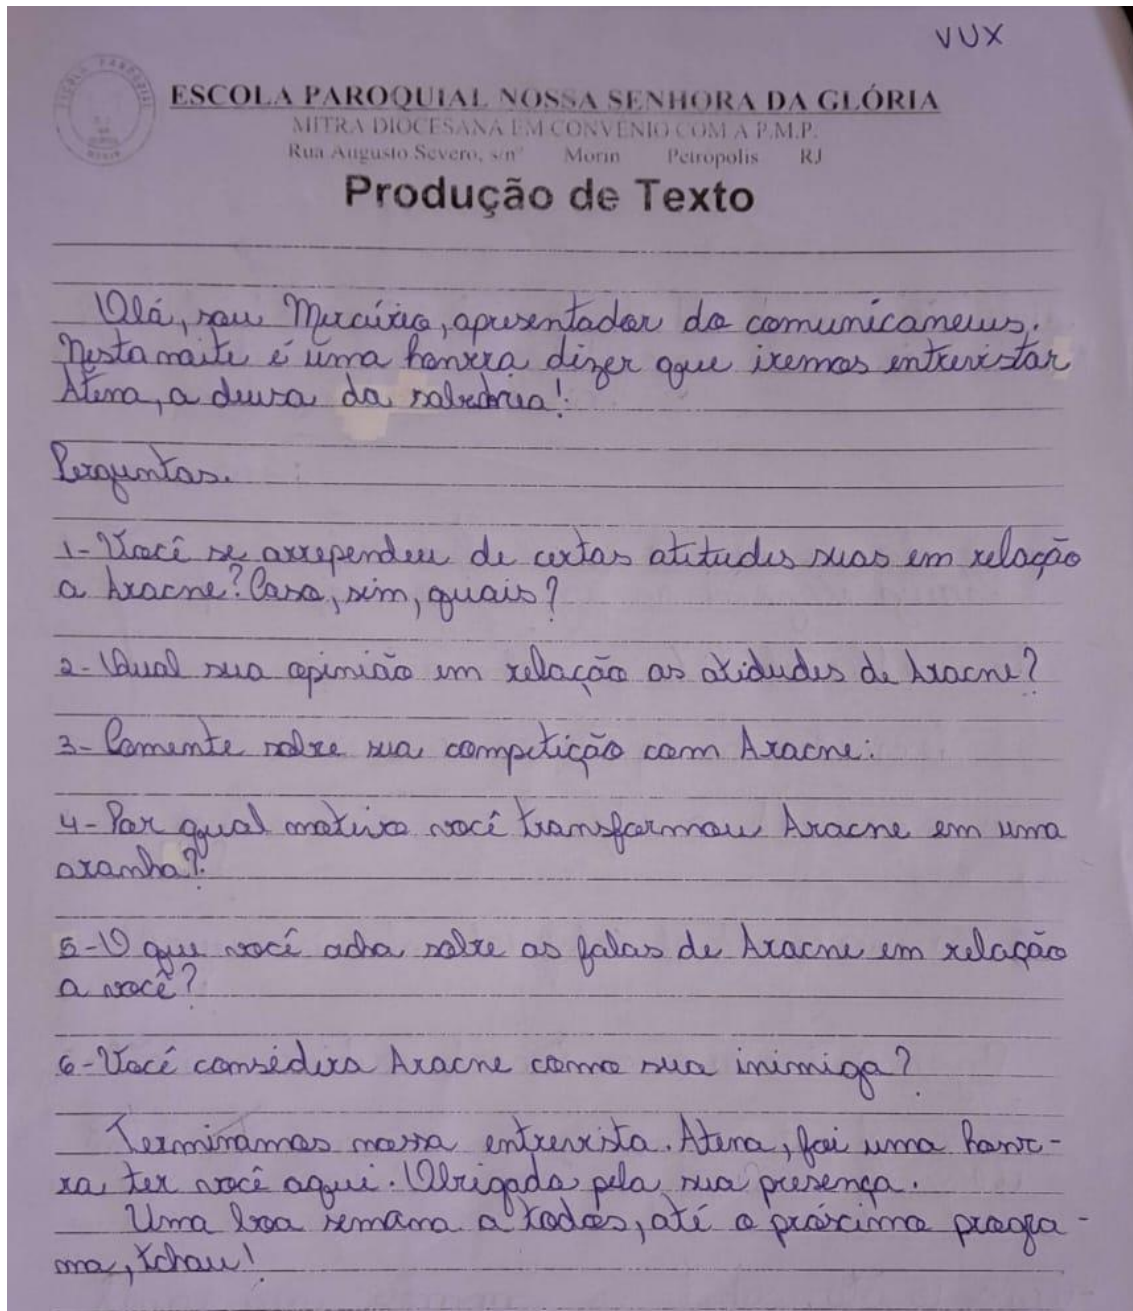 VUX
ESCOLA PAROQUIAL NOSSA SENHORA DA GLÓRIA
MITRA DIOCESANA EM CONVÊNIO COM A P.M.P.
Rua Augusto Severo, s/nº Morin Petropolis RJ
Produção de Texto
Olá, sou Mercúrio, apresentador do comunicameus.
Nesta noite é uma honra dizer que iremos entrevistar
Atena, a deusa da sabedoria!
Perguntas.
1- Você se arrependeu de certas atitudes suas em relação
a Aracne? Caso, sim, quais?
2- Qual sua opinião em relação as atidudes de Aracne?
3- Comente sobre sua competição com Aracne:
4- Por qual motivo você transformou Aracne em uma
aranha?
5- O que você acha sobre as falas de Aracne em relação
a você?
6- Você considera Aracne como sua inimiga?
Terminamos nossa entrevista. Atena, foi uma hon-
ra ter você aqui. Obrigada pela sua presença.
Uma boa semana a todos, até o próximo progra-
ma, tchau!